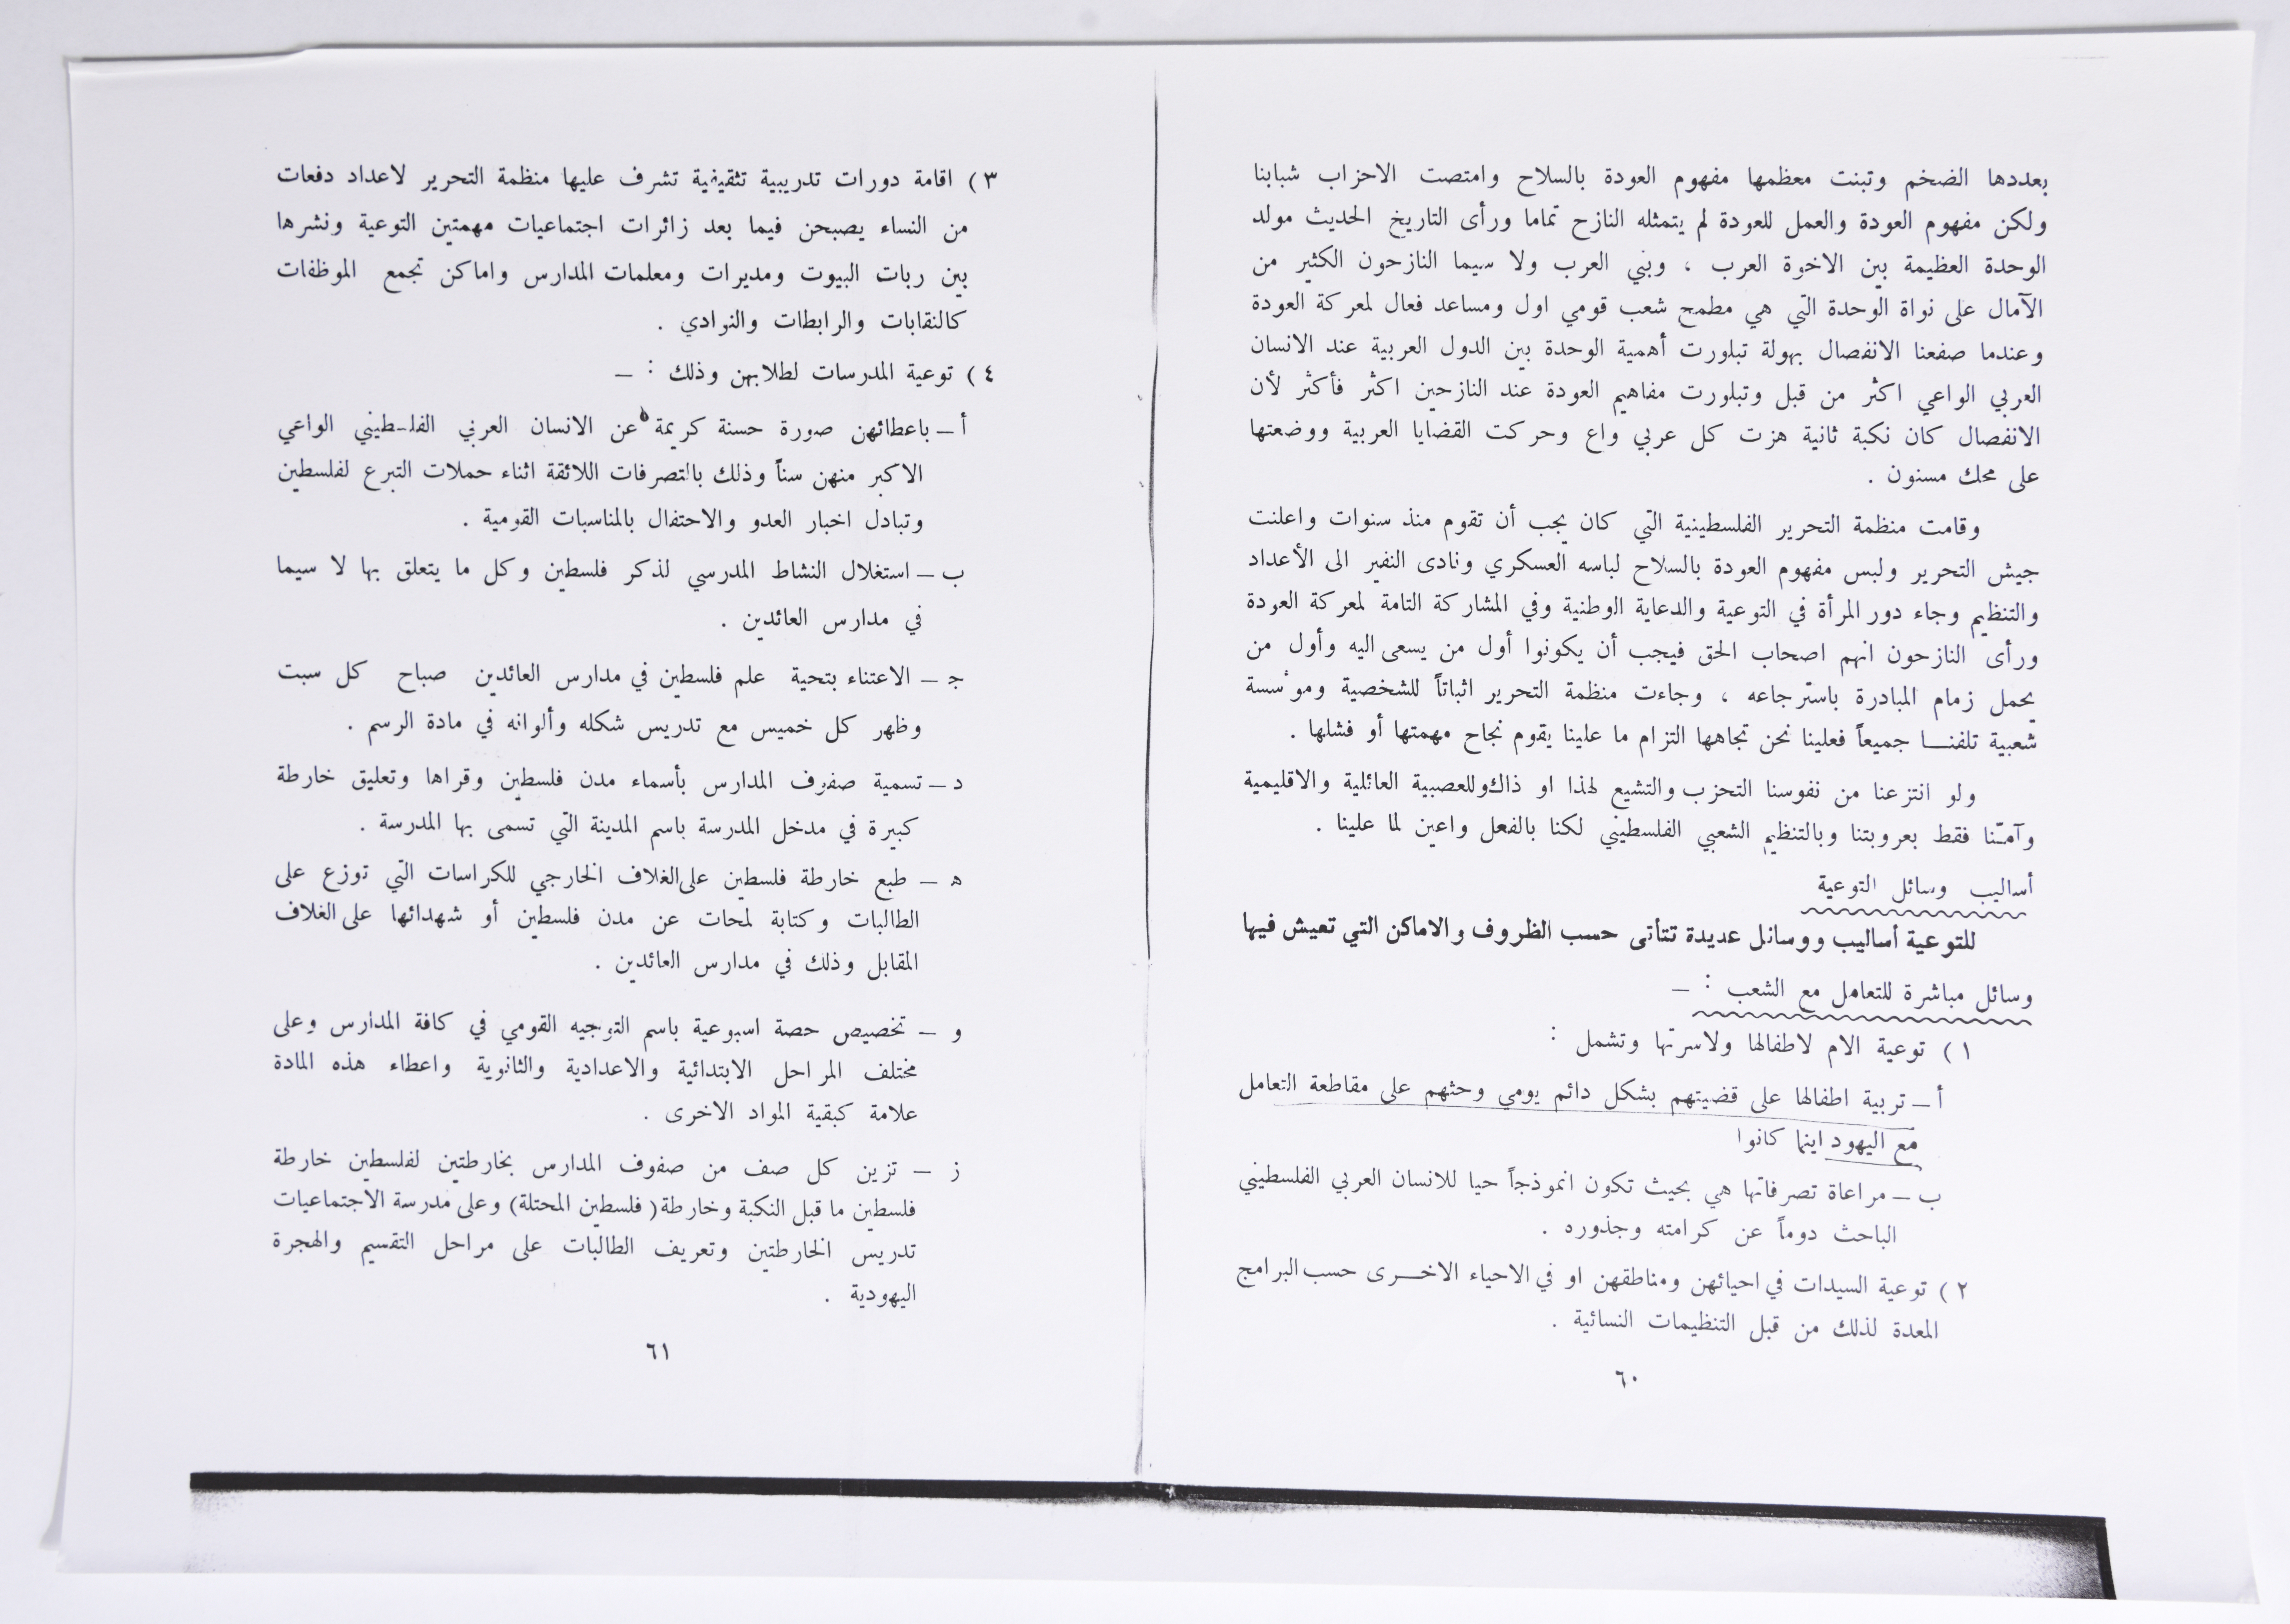 بعددها الضخم وتبنت معظمها مفهوم العودة بالسلاح وامتصت الاحزاب شبابنا
ولكن مفهوم العودة والعمل للعودة لم يتمثله النازح تماما ورأى التاريخ الحديث مولد
الوحدة العظيمة بين الاخوة العرب ، وبني العرب ولا سيما النازحون الكثير من
الآمال على نواة الوحدة التي هي مطمح شعب قومي اول ومساعد فعال لمعركة العودة
وعندما صفعنا الانفصال بهولة تبلورت أهمية الوحدة بين الدول العربية عند الانسان
العربي الواعي اكثر من قبل وتبلورت مفاهيم العودة عند النازحين اكثر فأكثر لأن
الانفصال كان نكبة ثانية هزت كل عربي واع وحركت القضايا العربية ووضعتها
على محك مسنون .
وقامت منظمة التحرير الفلسطينية التي كان يجب أن تقوم منذ سنوات واعلنت
جيش التحرير ولبس مفهوم العودة بالسلاح لباسه العسكري ونادى النفير الى الأعداد
والتنظيم وجاء دور المرأة في التوعية والدعاية الوطنية وفي المشاركة التامة لمعركة العودة
ورأى النازحون انهم اصحاب الحق فيجب أن يكونوا أول من يسعى اليه وأول من
يحمل زمام المبادرة باسترجاعه ، وجاءت منظمة التحرير اثباتاً للشخصية وموءسسة
شعبية تلفنا جميعاً فعلينا نحن تجاهها التزام ما علينا يقوم نجاح مهمتها أو فشلها .
ولو انتزعنا من نفوسنا التحزب والتشيع لهذا او ذاك وللعصبية العائلية والاقليمية
وآمنّا فقط بعروبتنا وبالتنظيم الشعبي الفلسطيني لكنا بالفعل واعين لما علينا .
أساليب وسائل التوعية
للتوعية أساليب ووسائل عديدة تتأتى حسب الظروف والاماكن التي تعيش فيها
وسائل مباشرة للتعامل مع الشعب : –
١ ) توعية الام لاطفالها ولاسرتها وتشمل :
أ – تربية اطفالها على قضيتهم بشكل دائم يومي وحثهم على مقاطعة التعامل
مع اليهود اينما كانوا
ب – مراعاة تصرفاتها هي بحيث تكون انموذجاً حيا للانسان العربي الفلسطيني
الباحث دوماً عن كرامته وجذوره .
٢ ) توعية السيدات في احيائهن ومناطقهن او في الاحياء الاخرى حسب البرامج
المعدة لذلك من قبل التنظيمات النسائية .
٦٠
٣ ) اقامة دورات تدريبية تثقيفية تشرف عليها منظمة التحرير لاعداد دفعات
من النساء يصبحن فيما بعد زائرات اجتماعيات مهمتين التوعية ونشرها
بين ربات البيوت ومديرات ومعلمات المدارس واماكن تجمع الموظفات
كالنقابات والرابطات والنوادي .
٤ ) توعية المدرسات لطلابهن وذلك : –
أ – باعطائهن صورة حسنة كريمة عن الانسان العربي الفلسطيني الواعي
الاكبر منهن سناً وذلك بالتصرفات اللائقة اثناء حملات التبرع لفلسطين
وتبادل اخبار العدو والاحتفال بالمناسبات القومية .
ب – استغلال النشاط المدرسي لذكر فلسطين وكل ما يتعلق بها لا سيما
في مدارس العائدين .
جـ – الاعتناء بتحية علم فلسطين في مدارس العائدين صباح كل سبت
وظهر كل خميس مع تدريس شكله وألوانه في مادة الرسم .
د – تسمية صفوف المدارس بأسماء مدن فلسطين وقراها وتعليق خارطة
كبيرة في مدخل المدرسة باسم المدينة التي تسمى بها المدرسة .
هـ – طبع خارطة فلسطين على الغلاف الخارجي للكراسات التي توزع على
الطالبات وكتابة لمحات عن مدن فلسطين أو شهدائها على الغلاف
المقابل وذلك في مدارس العائدين .
و – تخصيص حصة اسبوعية باسم التوجيه القومي في كافة المدارس وعلى
مختلف المراحل الابتدائية والاعدادية والثانوية واعطاء هذه المادة
علامة كبقية المواد الاخرى .
ز – تزين كل صف من صفوف المدارس بخارطتين لفلسطين خارطة
فلسطين ما قبل النكبة وخارطة ( فلسطين المحتلة ) وعلى مدرسة الاجتماعيات
تدريس الخارطتين وتعريف الطالبات على مراحل التقسيم والهجرة
اليهودية .
٦١